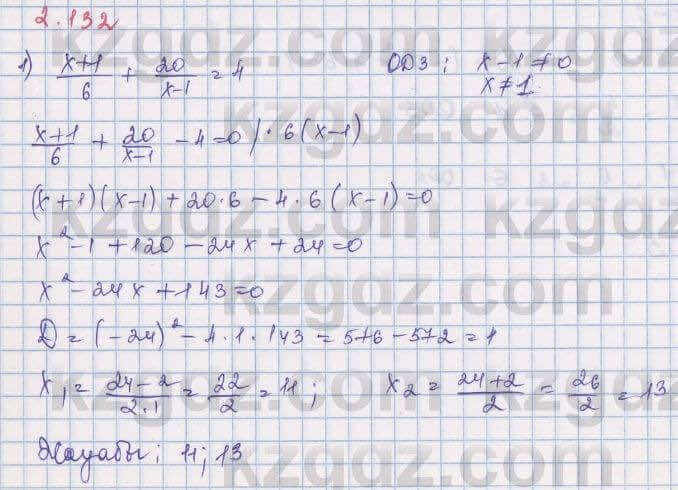 2.132
1) (x+1)/6 + 20/(x-1) = 4 ОДЗ: x-1≠0
x≠1
(x+1)/6 + 20/(x-1) - 4 = 0 | · 6(x-1)
(x+1)(x-1) + 20·6 - 4·6(x-1) = 0
x² - 1 + 120 - 24x + 24 = 0
x² - 24x + 143 = 0
D = (-24)² - 4·1·143 = 576 - 572 = 1
x₁ = (24-2)/(2·1) = 22/2 = 11; x₂ = (24+2)/2 = 26/2 = 13
Жауабы: 11; 13
kzgdz.com